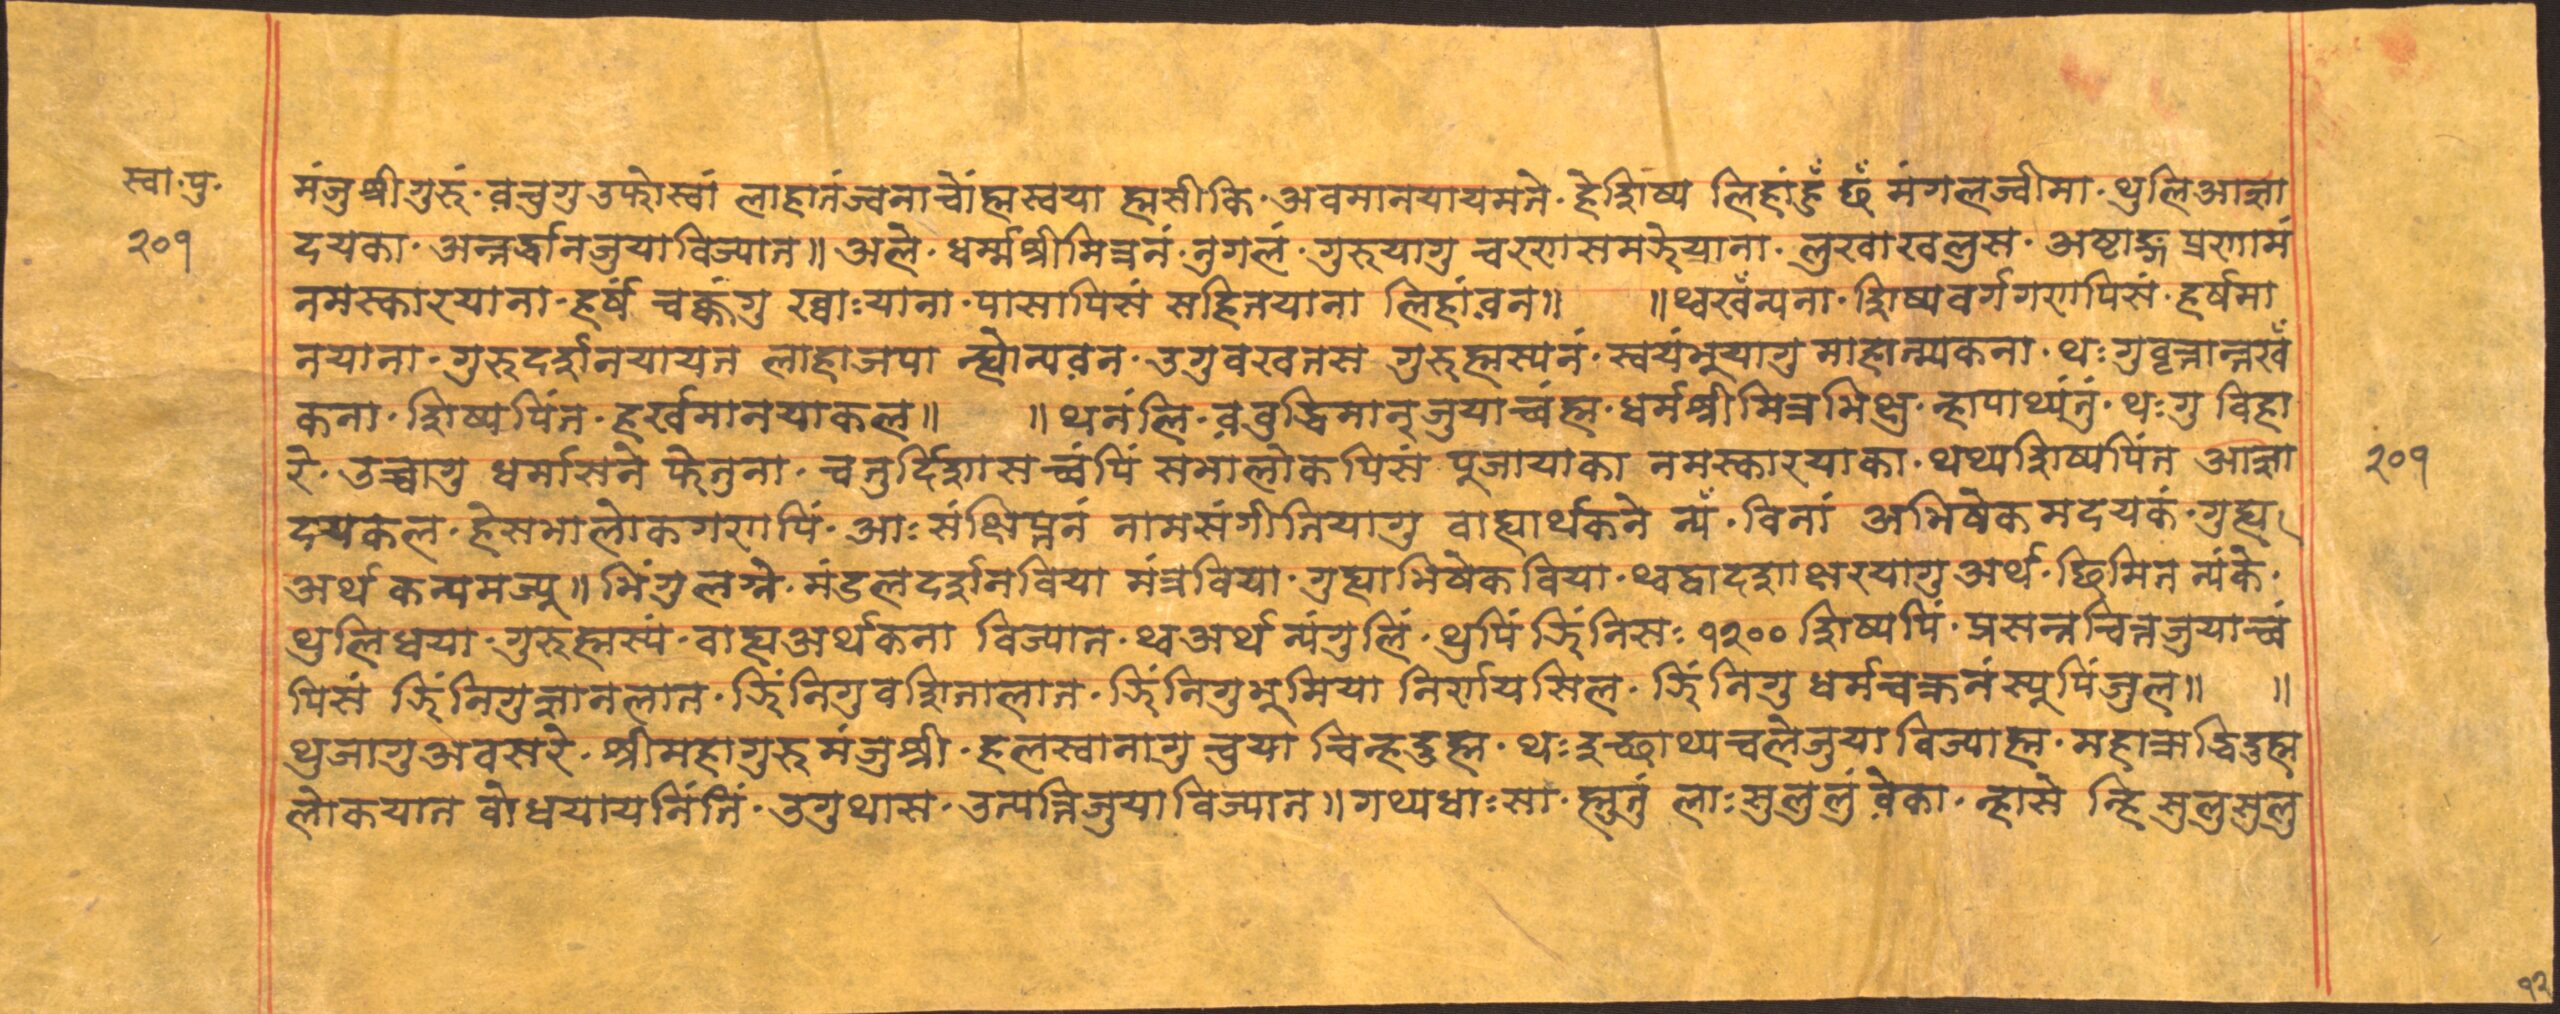 स्वा.पु.
२०१
मंजुश्रीगुरुं. व़चुगु उफोस्वां लाहातंज्वनाचोंह्मस्वया ह्मसीकि. अवमानयायमते. हेशिष्य लिहांहुँ छँ मंगलज्वीमा. थुलिआज्ञा
दयका. अन्तर्द्धानजुयाविज्यात॥ अले. धर्म्मश्रीमित्रनं. नुगलं. गुरुयागु चरणसमतेयाना. लुखाखलुस. अष्टाङ्ग प्रणामं
नमस्कारयाना. हर्षं चक्कंगु ख्वाःयाना. पासापिसं सहितयाना लिहांव़न॥ ॥थ्वखँन्यना. शिष्यवर्गगणपिसं. हर्षमा
नयाना. गुरुदर्शनयायत लाहाजपा न्ह्योन्यव़न. उगुवखतस गुरुह्मस्यनं. स्वयंभुयागु माहात्म्यकना. थःगुवृत्तान्तखँ
कना. शिष्यपिंत. हर्खमानयाकल॥ ॥थनंलि. व़वुद्धिमान् जुयाच्वंह्म. धर्मश्रीमित्रभिक्षु. न्हापाथ्यंतुं. थःगु विहा
रे. उच्चागु धर्मासने फेतुना. चतुर्दिशास च्वंपिं सभालोकपिसं पुजायाका नमस्कारयाका. थथ्यशिष्यपिंत आज्ञा
दयकल. हेसभालोकगणपिं. आः संक्षिप्तनं नामसंगीतियागु वाह्यार्थकने न्यँ. विनां अभिषेकमदयकं. गुह्य
अर्थ कन्यमज्यु॥ भिंगुलग्ने. मंडलदर्शनविया मंत्रविया. गुह्याभिषेकविया. थ्वद्वादशाक्षरयागु अर्थ. छिमित न्यंके.
थुलिधया. गुरुह्मस्यं. वाह्यअर्थकना विज्यात. थ्वअर्थ न्यंगुलिं. थुपिं झिंनिसः १२०० शिष्यपिं. प्रसन्नचित्तजुयाच्वं
पिसं झिंनिगुज्ञानलात. झिंनिगुवशितालात. झिंनिगुभुमिया निर्णयसिल. झिंनिगु धर्मचक्रनंस्यूपिंजुल॥ ॥
थुजागुअवसरे. श्रीमहागुरुमंजुश्री. हलस्वानागु चुया चिन्हदुह्म. थःइच्छाथ्यचलेजुयाविज्याह्म. महाऋद्धिदुह्म
लोकयात वोधयायनिंतिं. उगुथास. उत्पन्निजुयाविज्यात॥ गथ्यधाःसा. ह्नुतुं लाःसुलुलुं व़ेका. न्हासे न्हि सुलुसुलु
२०१
१२